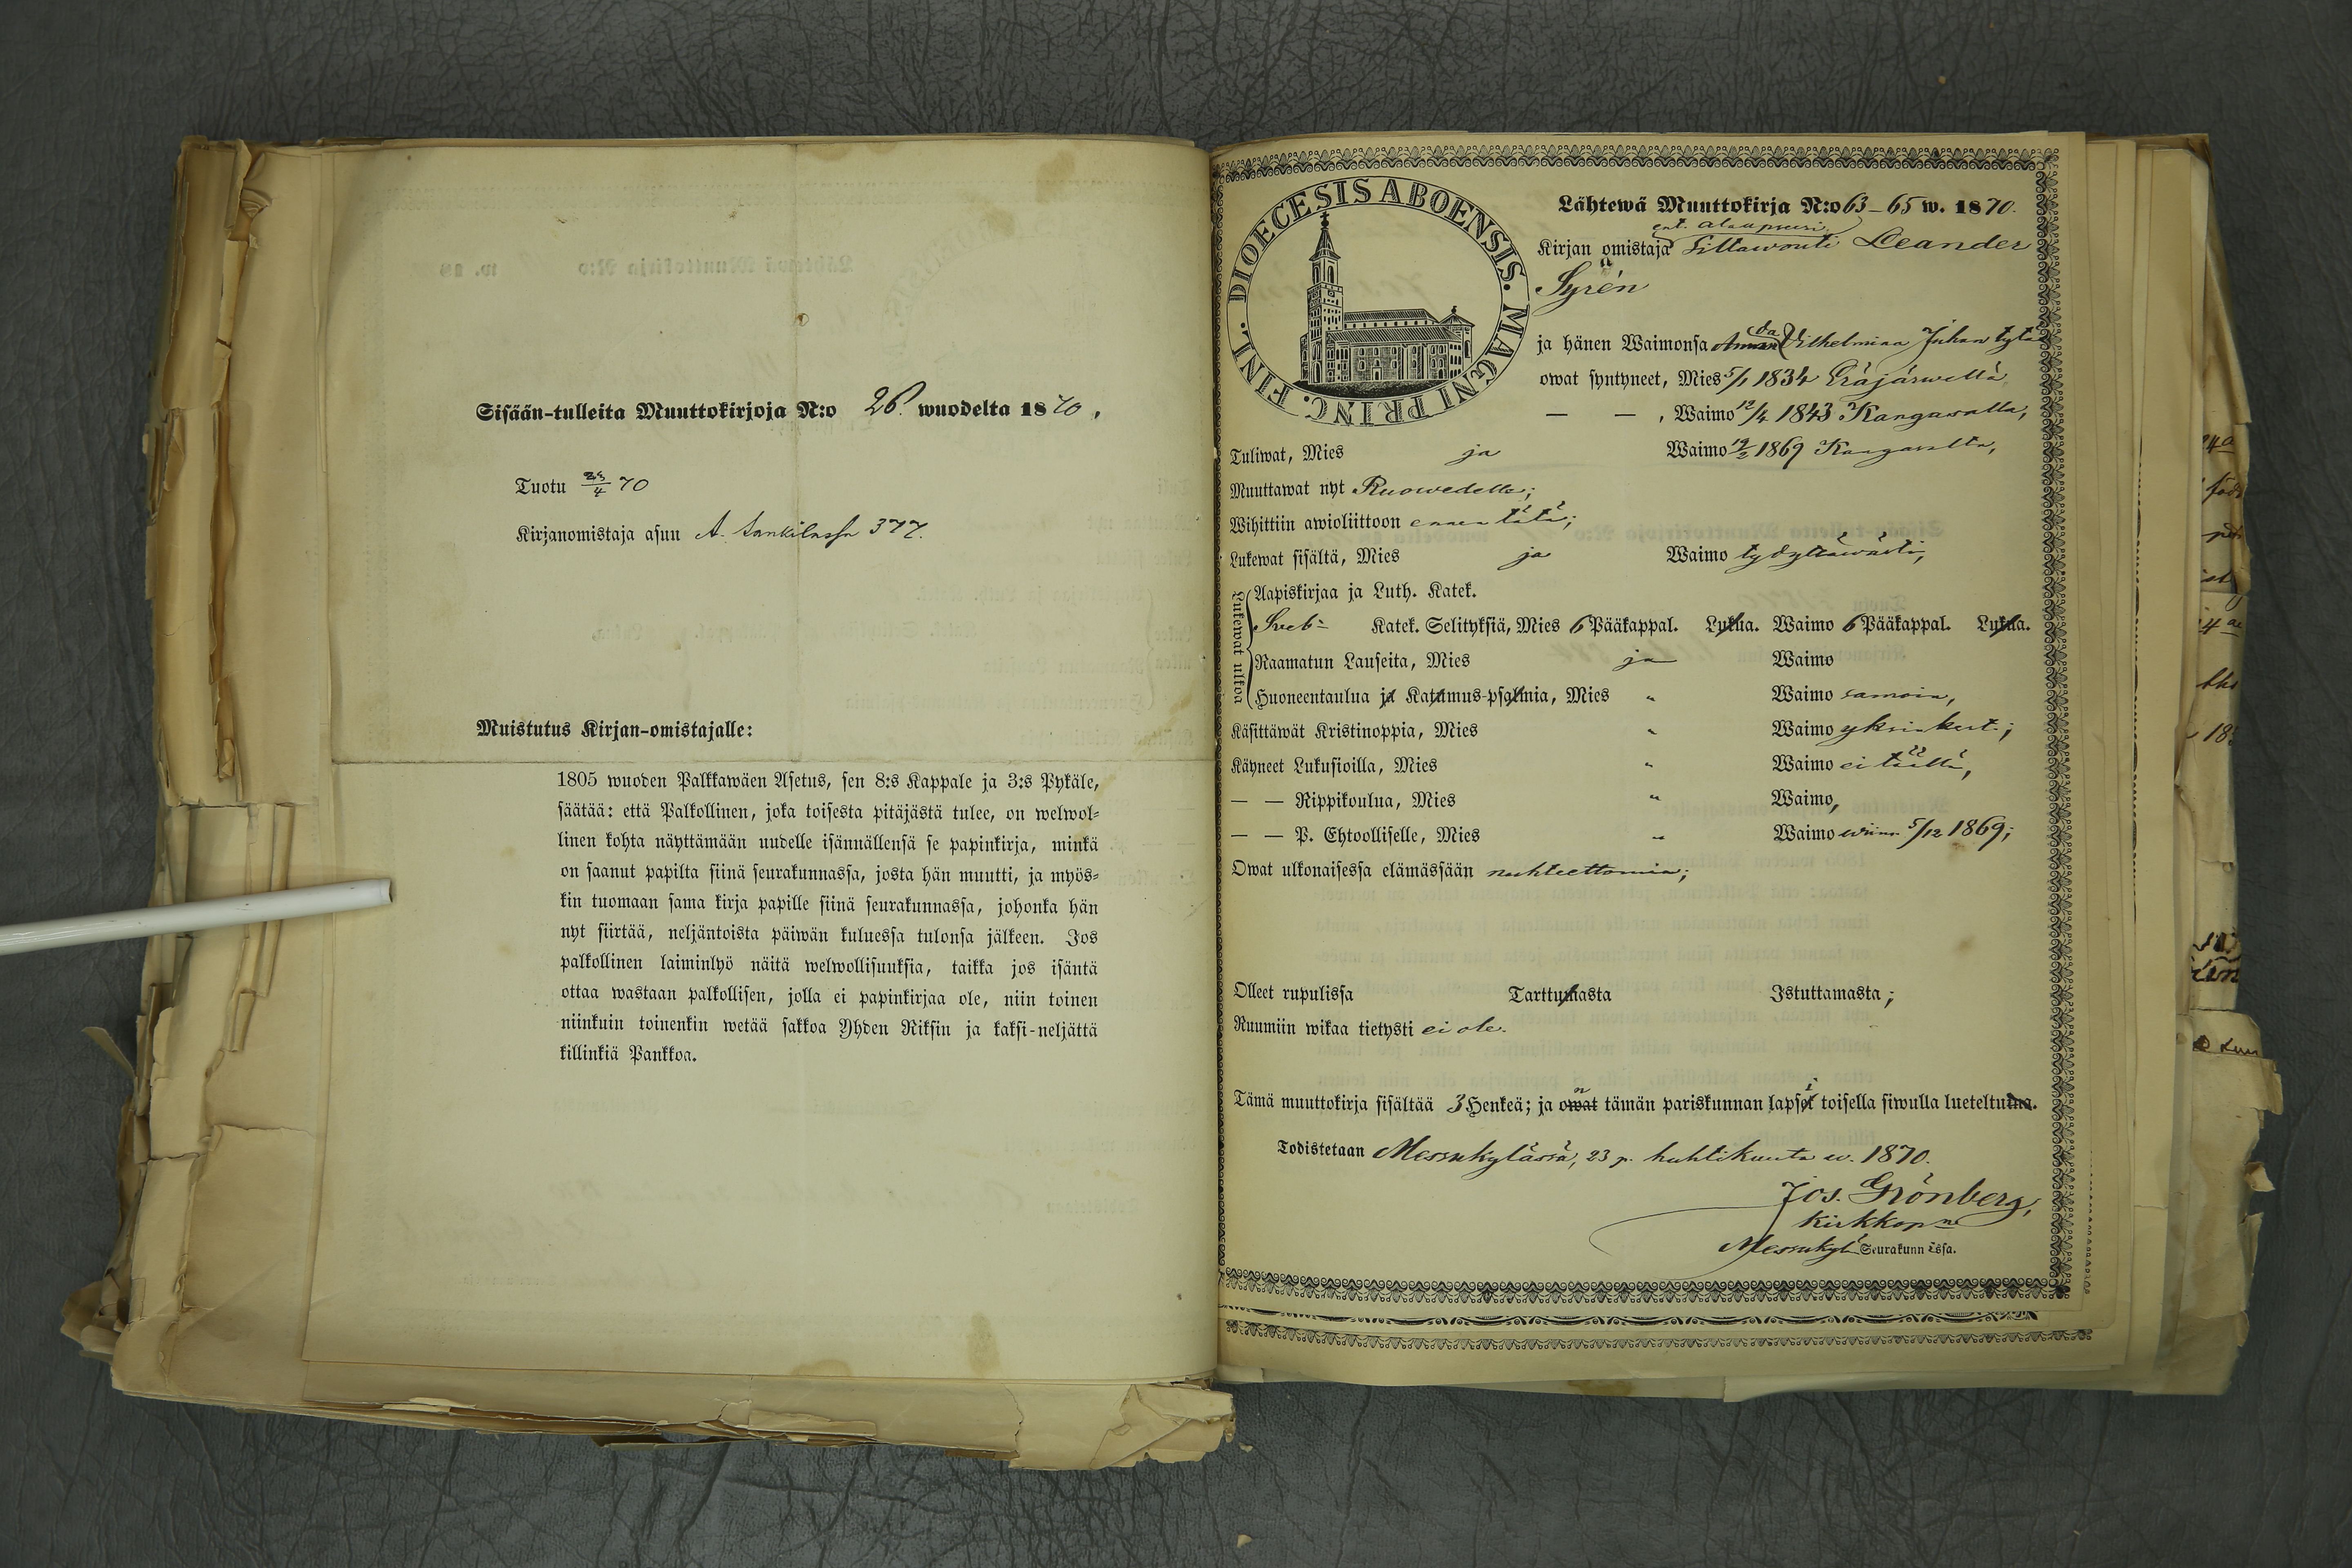 Sisään-tulleita Muuttokirjoja N:o 26. wuodelta 1870.
Tuotu 23/4 70
Kirjanomistaja asuu A. 377.
Muistutus Kirjan-omistajalle:
1805 wuoden Palkkawäen Asetus, sen 8:s Kappale ja 3:s Pykäle,
säätää: että Palkollinen, joka toisesta pitäjästä tulee, on welwol-
linen kohta näyttämään uudelle isännällensä se papinkirja, minkä
on saanut papilta siinä seurakunnassa, josta hän muutti, ja myös-
kin tuomaan sama kirja papille siinä seurakunnassa, johonka hän
nyt siirtää, neljäntoista päiwän kuluessa tulonsa jälkeen. Jos
palkollinen laiminlyö näitä welwollisuuksia, taikka jos isäntä
ottaa wastaan palkollisen, jolla ei papinkirjaa ole, niin toinen
niinkuin toinenkin wetää sakkoa Yhden Riksin ja kaksi-neljättä
killinkiä Pankkoa.
DIOECESIS ABOENSIS. MAGNI PRINC. FINL.
Lähtewä Muuttokirja N:o 63-65 w. 1870.
Kirjan omistaja Siltawouti Leander
Syrén
ja hänen Waimonsa Wilhelmiina Juhan tytär
owat syntyneet, Mies 5/1 1834 Eräjärwellä
— — , Waimo 12/4 1843 Kangasalla,
Tuliwat, Mies ja Waimo 19/2 1869 Kangasalta,
Muuttawat nyt Ruowedelle;
Wihittiin awioliittoon ennen tätä;
Lukewat sisältä, Mies ja Waimo tydyttäwästi,
Lukewat ulkoa
Aapiskirjaa ja Luth. Katek.
Sveb- Katek. Selityksiä, Mies 6 Pääkappal. Lukua. Waimo 6 Pääkappal. Lukua.
Raamatun Lauseita, Mies ja Waimo
Huoneentaulua ja Katumus-psalmia, Mies " Waimo samoin,
Käsittäwät Kristinoppia, Mies " Waimo yksinkert.;
Käyneet Lukusioilla, Mies " Waimo ei täällä,
— — Rippikoulua, Mies " Waimo,
— — P. Ehtoolliselle, Mies " Waimo wiim. 5/12 1869;
Owat ulkonaisessa elämässään nuhteettomia;
Olleet rupulissa Tarttumasta Istuttamasta;
Ruumiin wikaa tietysti ei ole.
Tämä muuttokirja sisältää 3 Henkeä; ja owat tämän pariskunnan lapset toisella siwulla lueteltuina.
Todistetaan Messukylässä, 23 p. huhtikuuta w. 1870.
Jos. Grönberg,
Kirkkop:n
Messukylä Seurakunnassa.